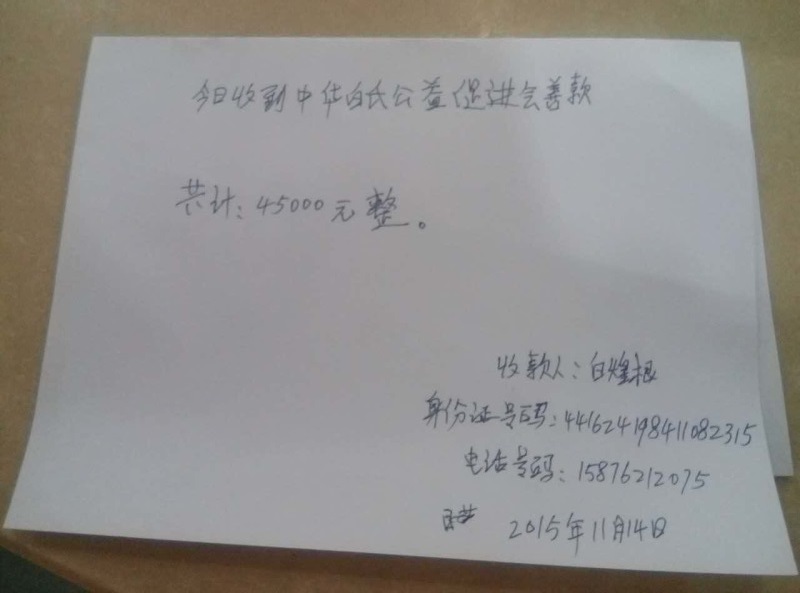 今日收到中华白氏公益促进会善款
共计：45000元整。
收款人：白煌根
身份证号码：441624198411082315
电话号码：15876212075
2015年11月14日